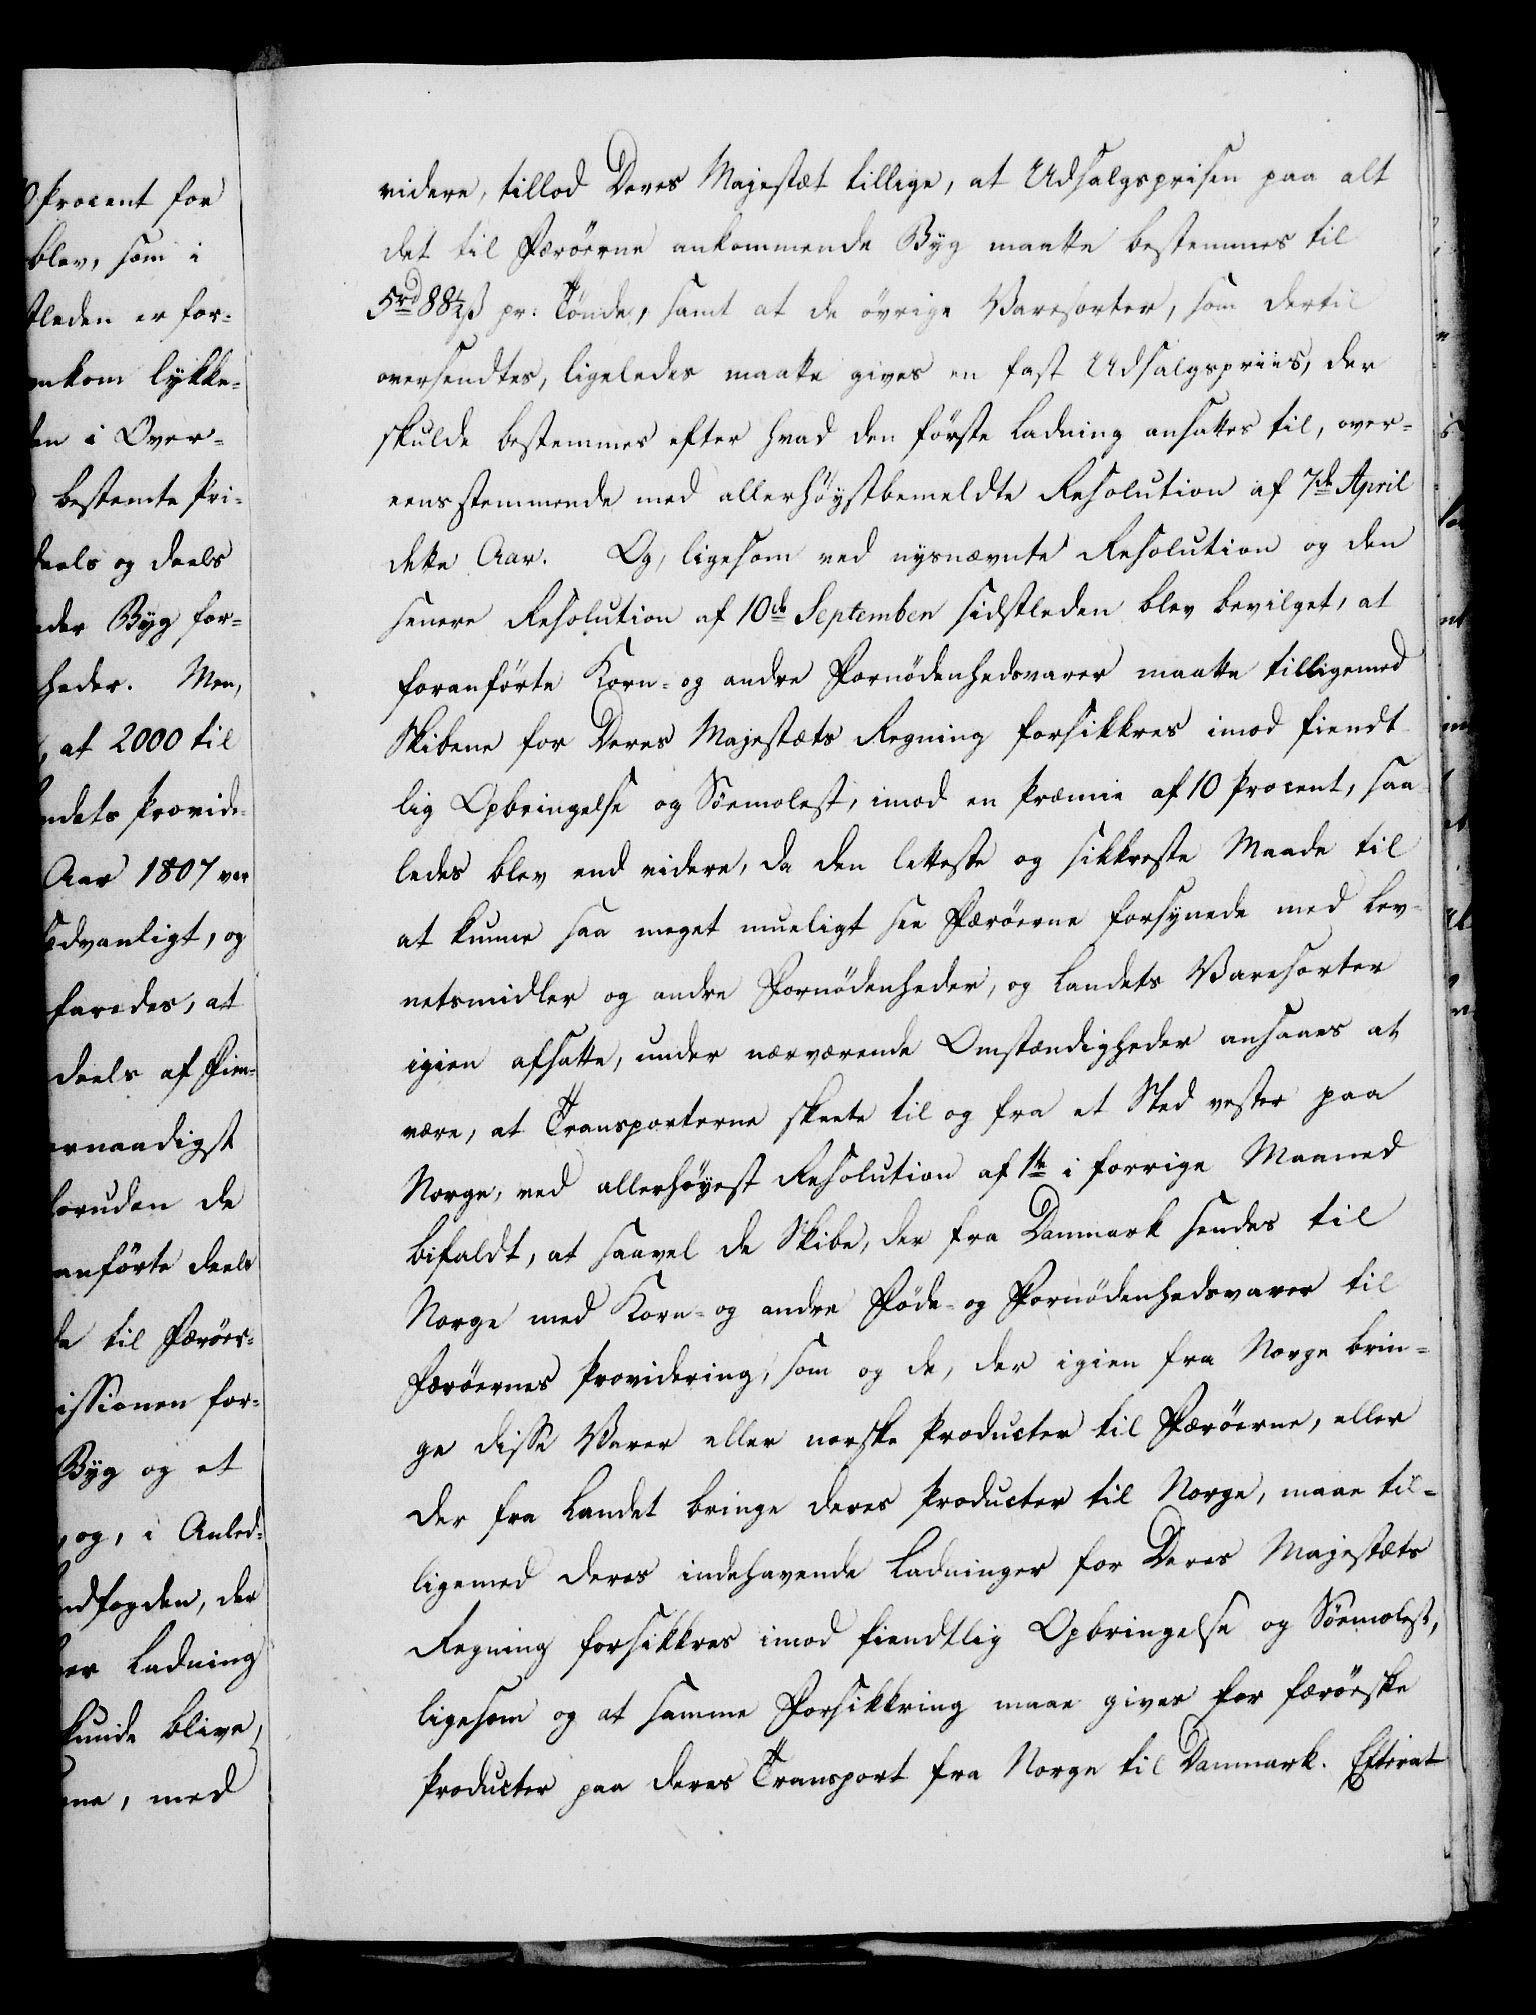 Procent for
blev, som i
stleden er for-
ankom lykke-
den i Over-
bestemte Pri-
deels og deels
nder Byg for-
heder. Men,
, at 2000 til
ndets Provide-
Aar 1807 var
sædvanligt, og
faredes, at
deels af Fien-
ernaadigst
foruden de
anførte deels
de til Færøer-
issionen for-
Byg og et
, og, i Anled-
ndfogden, der
ver Ladning
kunde blive,
ene, med
videre, tillod Deres Majestæt tillige, at Udsalgsprisen paa alt
det til Færöerne ankommende Byg maatte bestemmes til
5rd 88½ß pr: Tönde, samt at de övrige Varesorter, som dertil
oversendtes, ligeledes maatte gives en fast Udsalgspriis, der
skulde bestemmes efter hvad den förste Ladning ansattes til, over-
eensstemmende med allerhöystbemeldte Resolution af 7de April
dette Aar. Og, ligesom ved nysnævnte Resolution og den
senere Resolution af 10de September sidstleden blev bevilget, at
foranförte Korn- og andre Fornödenhedsvarer maatte tilligemed
Skibene for Deres Majestæts Regning forsikkres imod fiendt-
lig Opbringelse og Söemolest, imod en Præmie af 10 Procent, saa-
ledes blev end videre, da den letteste og sikkreste Maade til
at kunne saa meget mueligt see Færöerne forsynede med Lev-
netsmidler og andre Fornödenheder, og Landets Varesorter
igien afsatte, under nærværende Omstændigheder ansaaes at
være, at Transporterne skeete til og fra et Sted vester paa
Norge, ved allerhöyest Resolution af 1te i forrige Maaned
bifaldt, at saavel de Skibe, der fra Danmark sendes til
Norge med Korn- og andre Föde- og Fornödenhedsvarer til
Færöernes Providering, som og de, der igien fra Norge brin-
ge disse Varer eller norske Producter til Færöerne, eller
der fra Landet bringe deres Producter til Norge, maae til-
ligemed deres indehavende Ladninger for Deres Majestæts
Regning forsikkres imod fiendtlig Opbringelse og Söemolest,
ligesom og at samme Forsikkring maae gives for færöeske
Producter paa deres Transport fra Norge til Danmark. Efterat